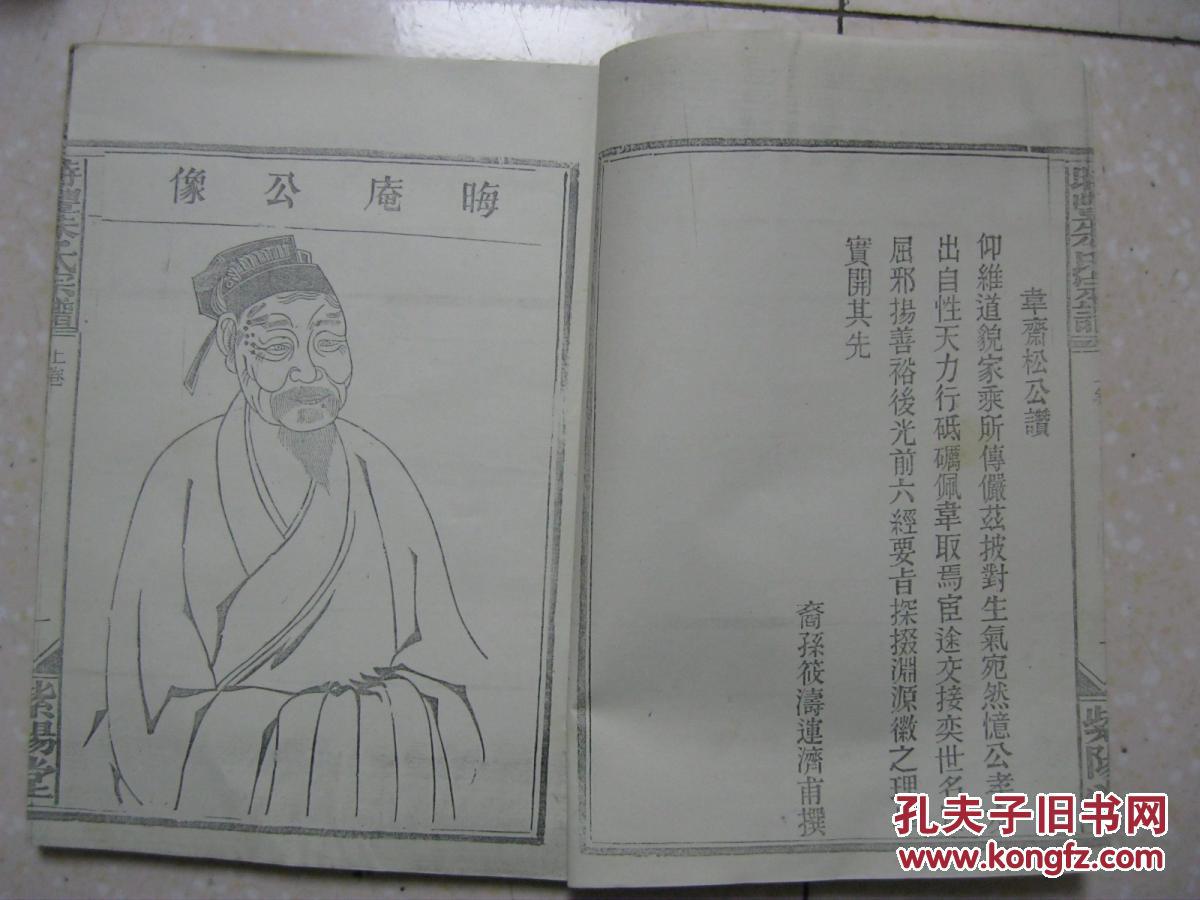 韋齋松公讚
仰維道貌家乘所傳儼茲披對生氣宛然憶公孝
出自性天力行砥礪佩韋取焉宦途交接奕世名
屈邪揚善裕後光前六經要旨探掇淵源徽之理
實開其先
裔孫筱濤連濟甫撰
紫陽
晦庵公像
朱氏宗譜
上卷
一
紫陽堂
孔夫子旧书网
www.kongfz.com